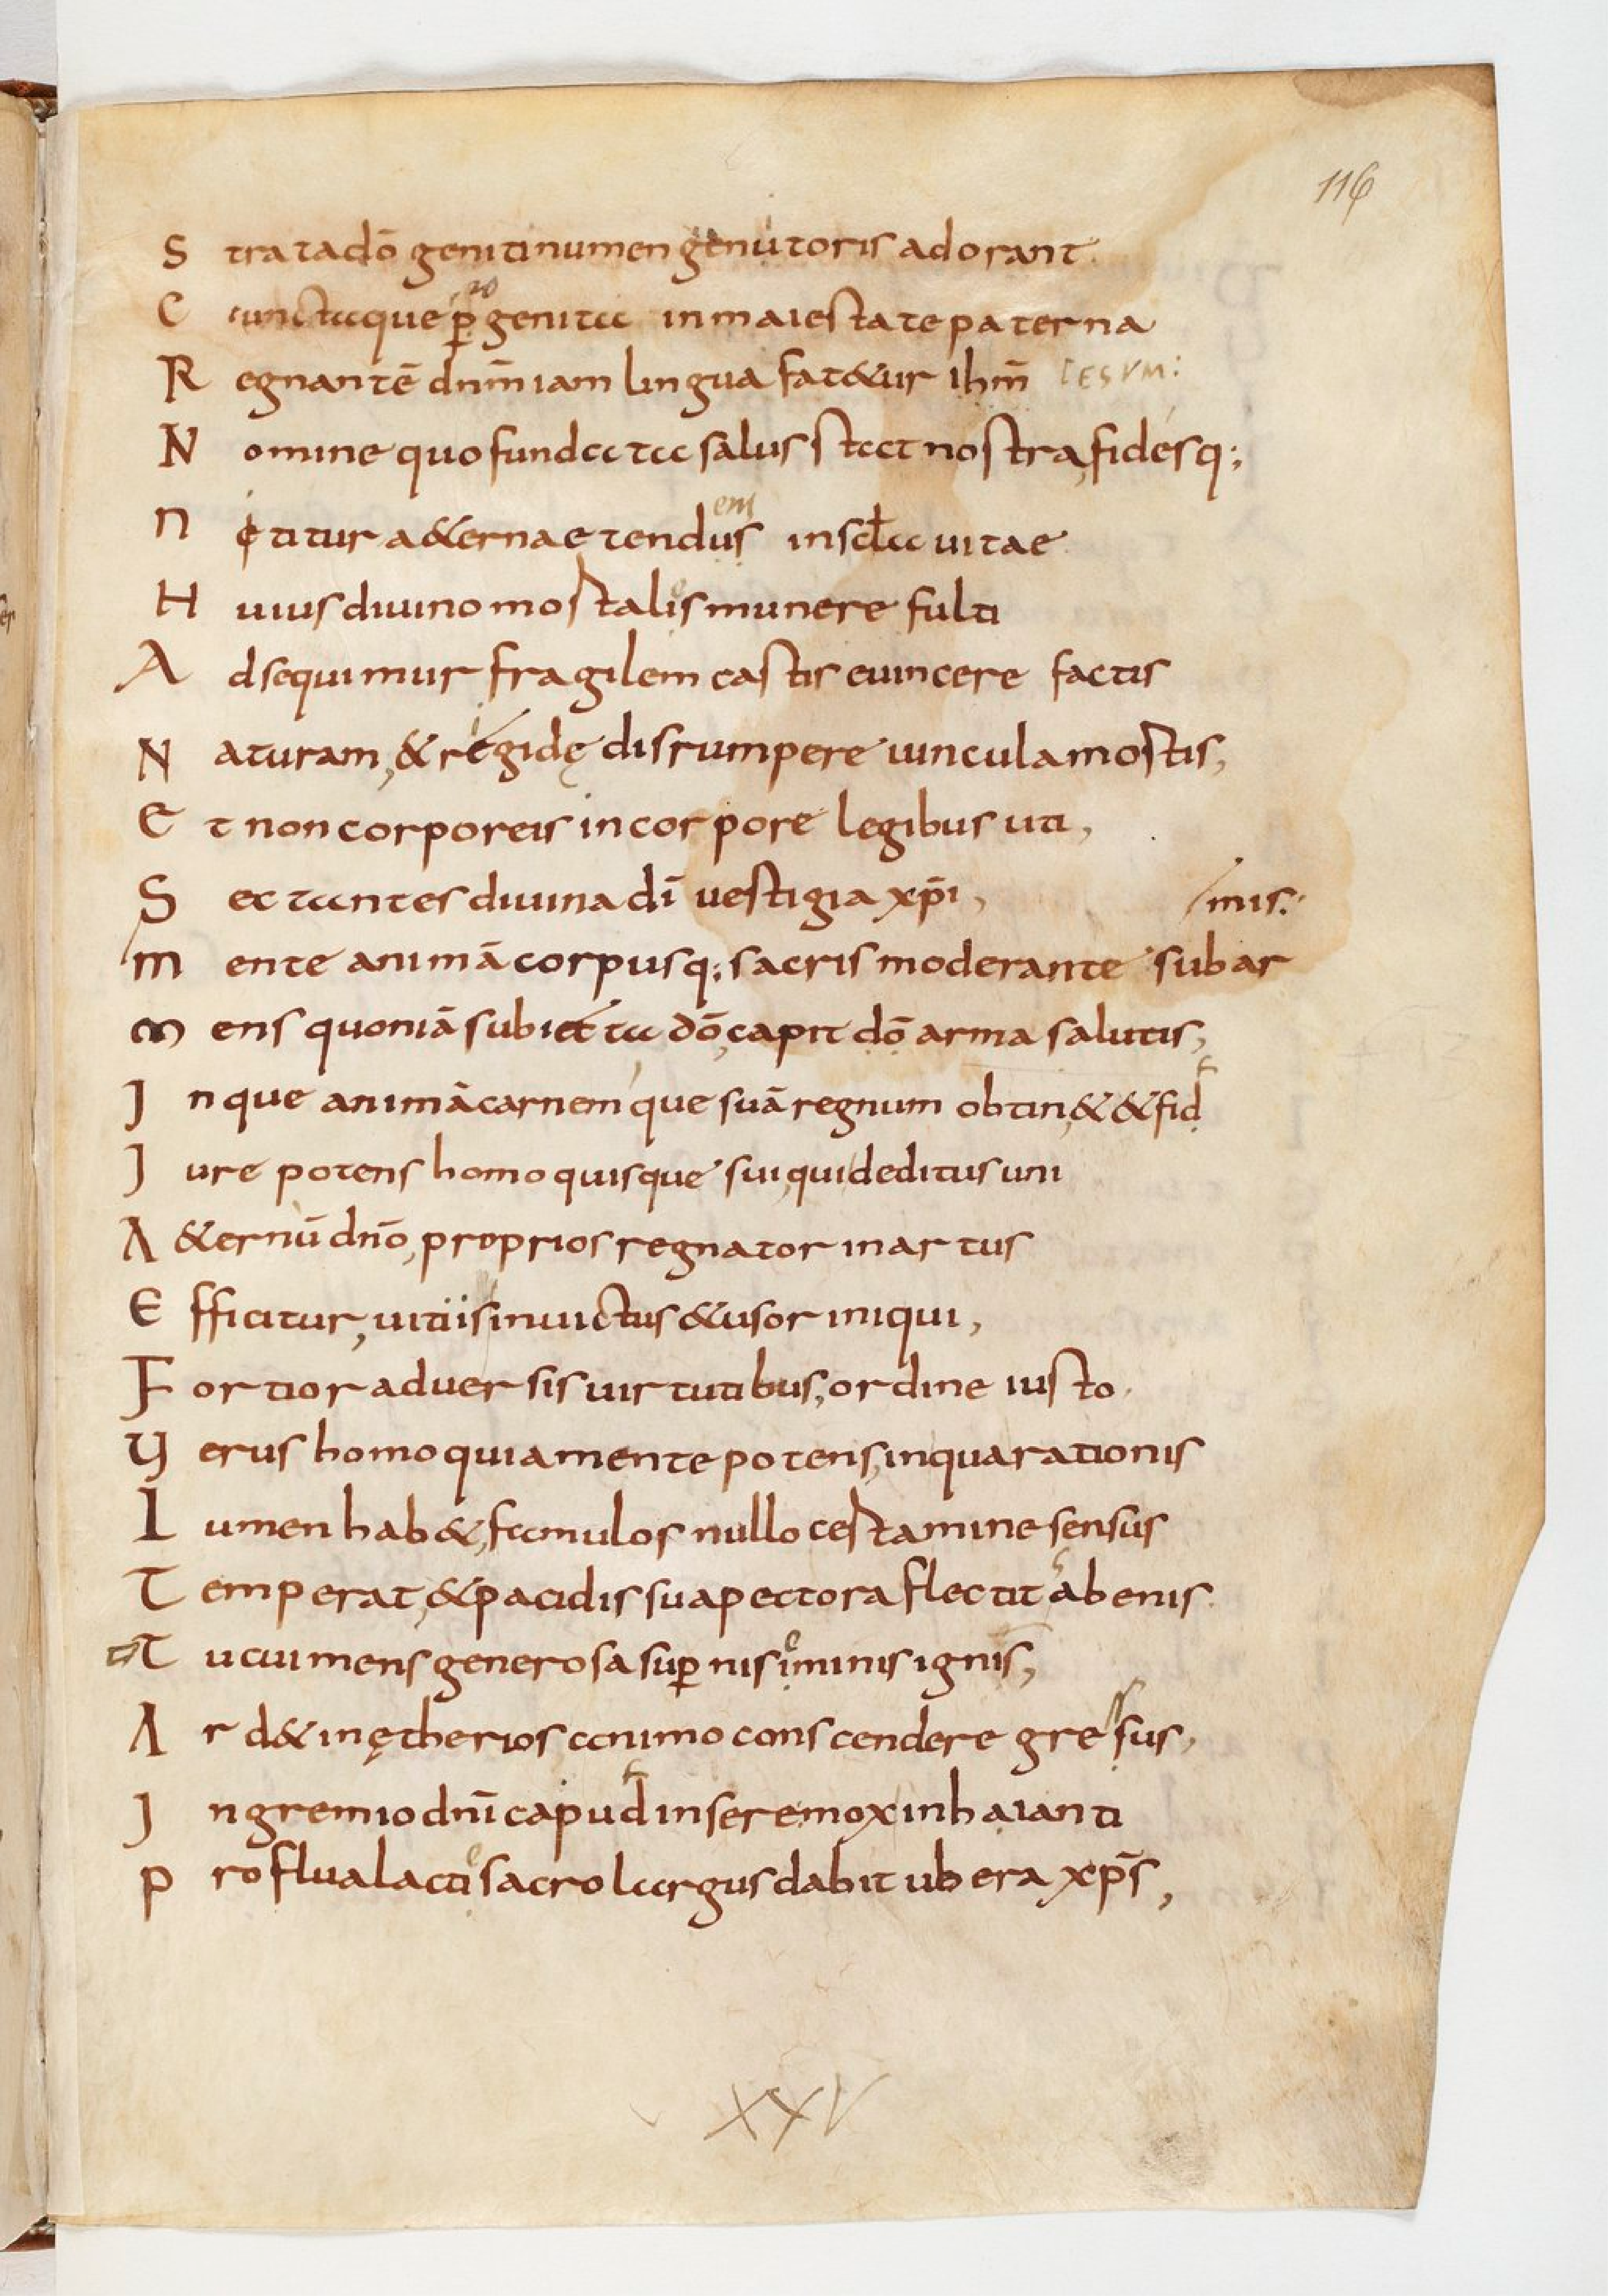 116
S trata dō geniti numen genitoris adorant
C unctaque progenita in maiestate paterna
R egnantē dnm̄ iam lingua fat&ur ihm̄ IESUM:
N omine quo fundata salus stat nostra, fidesq;
N ititur a&ernae tendens in scła uitae
H uius diuino mortales munere fulti
A dsequimur fragilem castis euincere factis
N aturam, & rigidę disrumpere uincula mortis,
E t non corporeis in corpore legibus uti,
S ectantes diuina dī uestigia xp̄i,
m ente animā corpusq; sacris moderante sub armis.
m ens quoniā subiecta dō, capit dō arma salutis,
I nque animā carnemque suā regnum obtin& & fid
I ure potens homo quisque sui, qui deditus uni
A &ernū dnō, proprios regnator in artus
E fficitur, uitiis inuictus &usor iniqui,
F ortior aduersis uirtutibus, ordine iusto
U erus homo quia mente potens, in qua rationis
L umen hab&, famulos nullo certamine sensus
T emperat, & pacidis sua pectora flectit abenis.
T u cui mens generosa sup̱nis eminis ignis,
A rd& in ętherios animo conscendere gressus,
I n gremio dnī caput insere mox inhaianti
P roflua lacte sacro largus dabit ubera xp̄s,
XXV